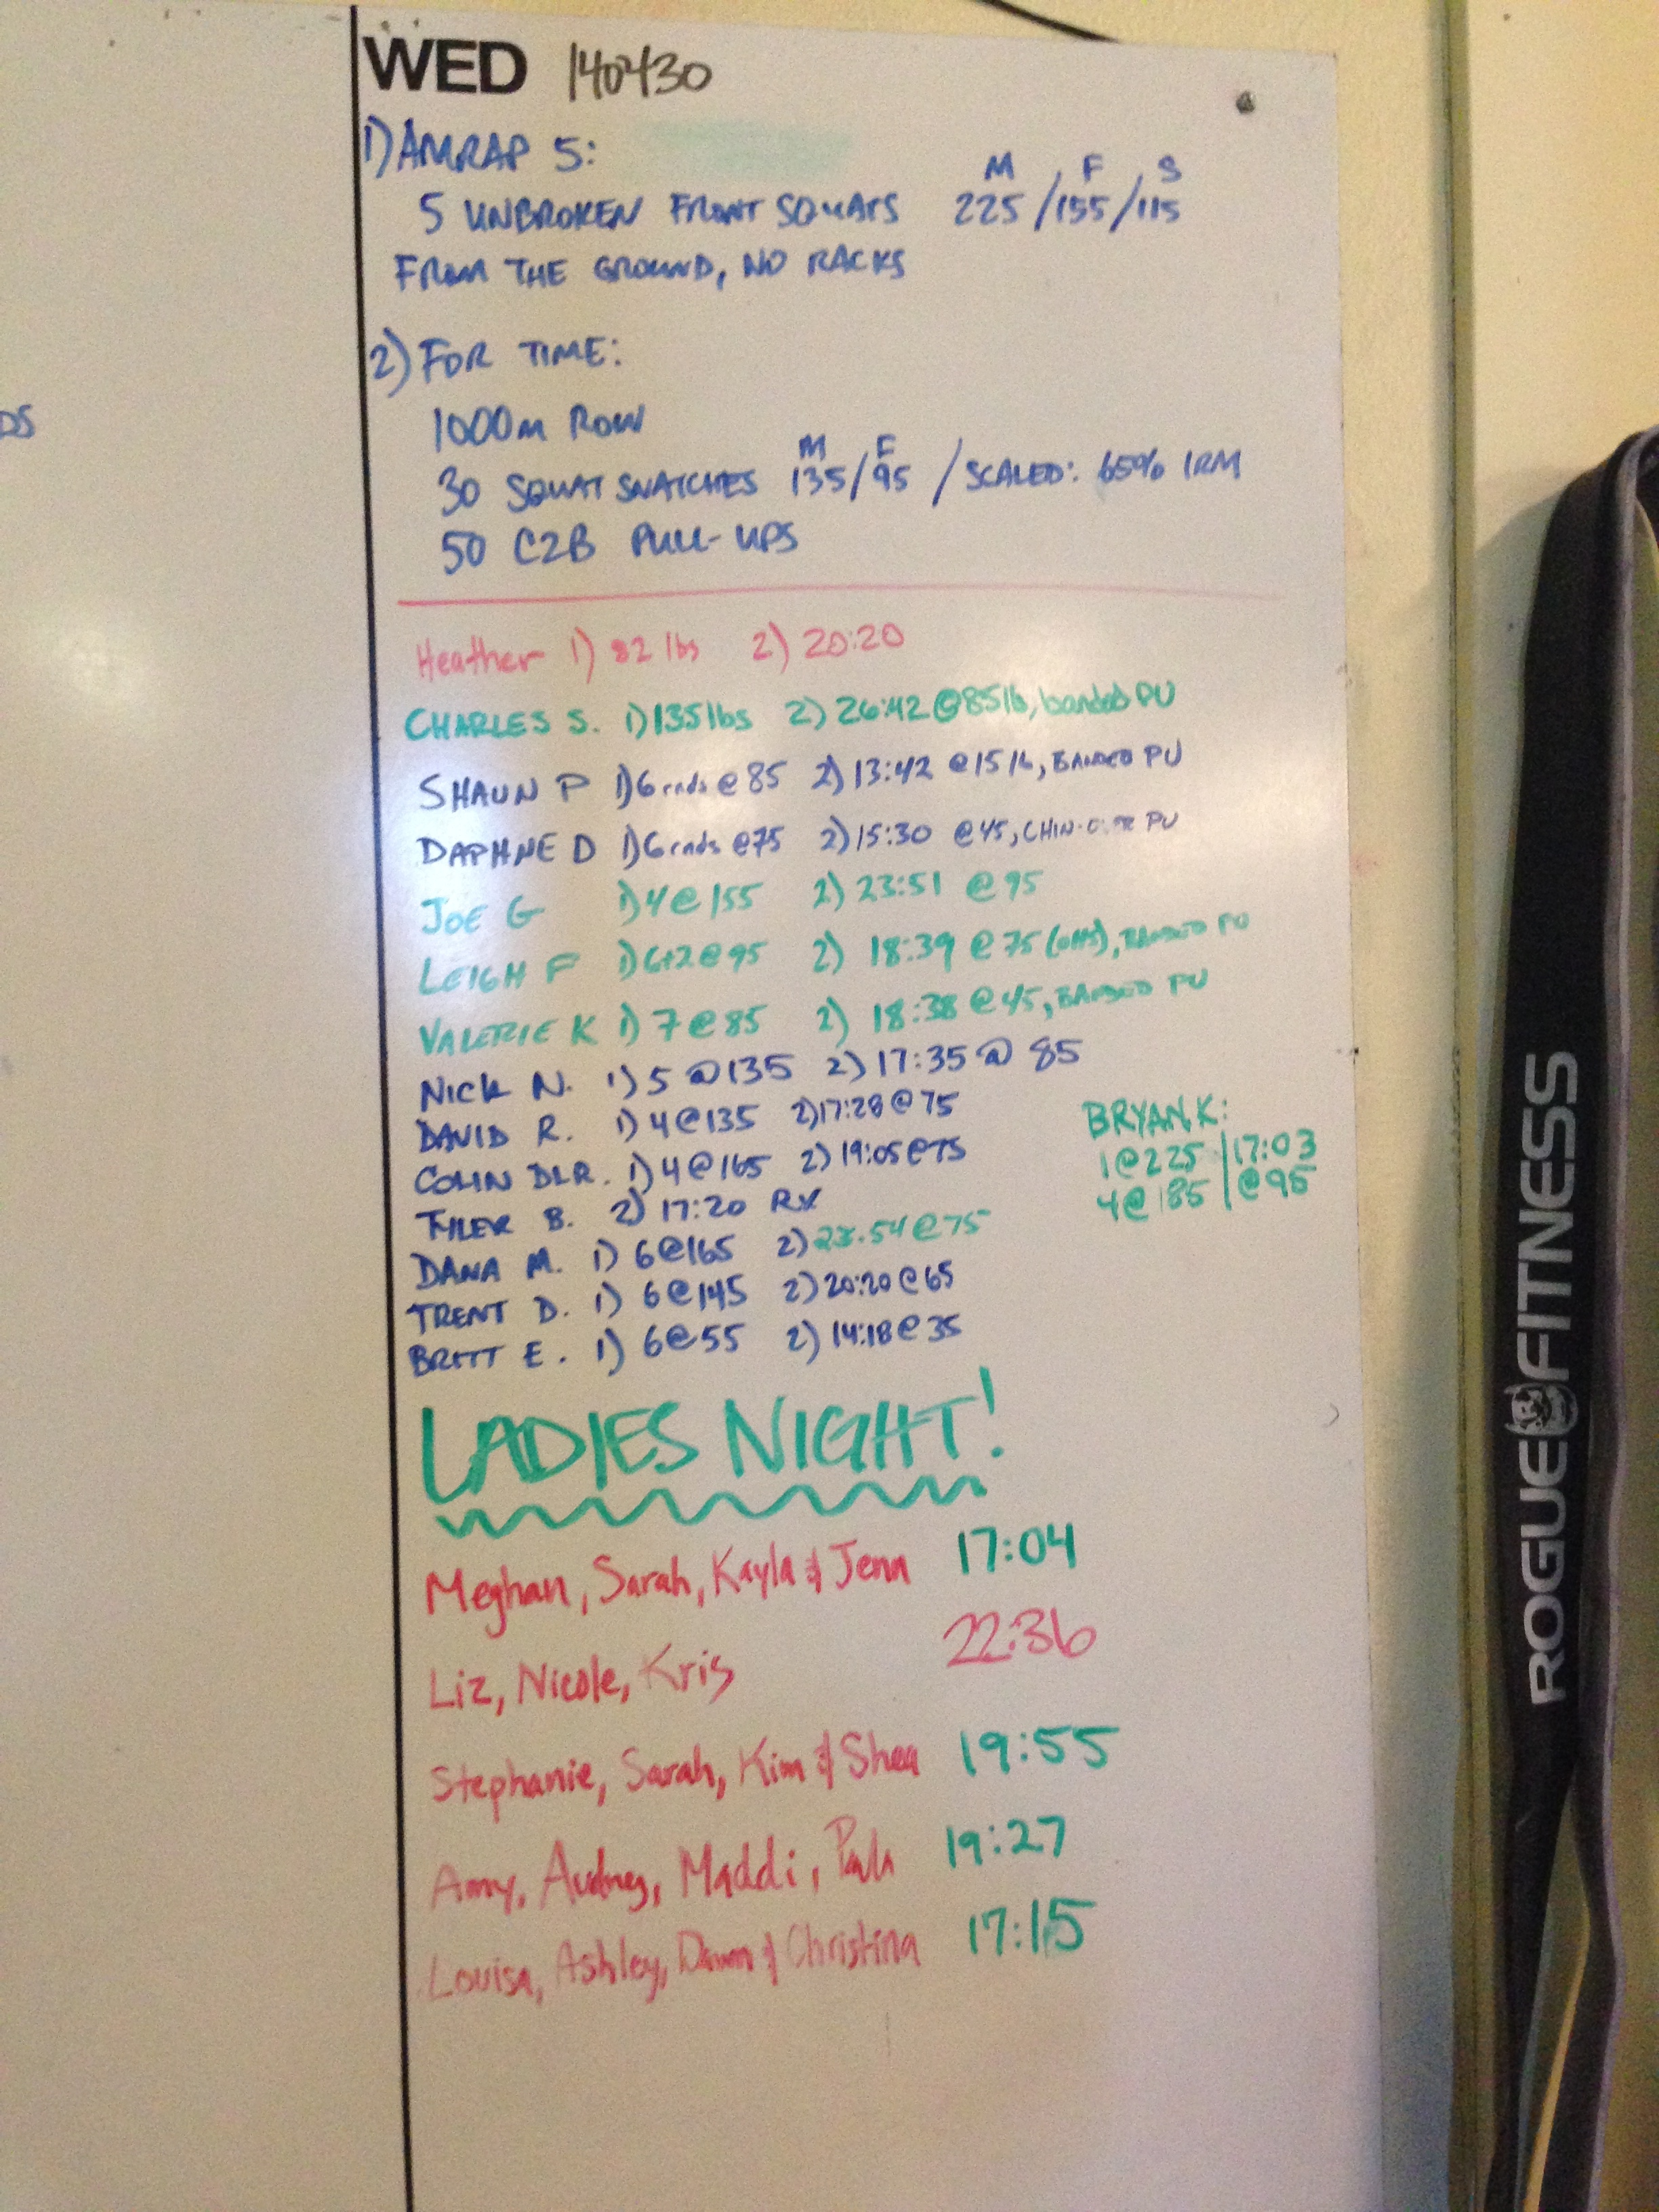 DS
WED 140430
1) AMRAP 5:
M F S
5 UNBROKEN FRONT SQUATS 225/155/115
FROM THE GROUND, NO RACKS
2) FOR TIME:
1000m ROW
M F
30 SQUAT SNATCHES 135/95 / SCALED: 65% 1RM
50 C2B PULL-UPS
Heather 1) 82 lbs 2) 20:20
CHARLES S. 1) 135 lbs 2) 26:42 @ 85 lb, banded PU
SHAUN P 1) 6 rnds @ 85 2) 13:42 @ 15 lb, BANDED PU
DAPHNE D 1) 6 rnds @ 75 2) 15:30 @ 45, CHIN-OVER PU
JOE G 1) 4 @ 155 2) 23:51 @ 95
LEIGH F 1) 6+2 @ 95 2) 18:39 @ 75 (OHS), BANDED PU
VALERIE K 1) 7 @ 85 2) 18:38 @ 45, BANDED PU
NICK N. 1) 5 @ 135 2) 17:35 @ 85
DAVID R. 1) 4 @ 135 2) 17:28 @ 75
COLIN DLR. 1) 4 @ 165 2) 19:05 @ 75
TYLER B. 2) 17:20 RX
DANA M. 1) 6 @ 165 2) :54 @ 75
TRENT D. 1) 6 @ 145 2) 20:20 @ 65
BRITT E. 1) 6 @ 55 2) 14:18 @ 35
BRYAN K:
1 @ 225 | 17:03
4 @ 185 | @ 95
LADIES NIGHT!
Meghan, Sarah, Kayla & Jenn 17:04
Liz, Nicole, Kris 22:36
Stephanie, Sarah, Kim & Shea 19:55
Amy, Audrey, Maddi, 19:27
Louisa, Ashley, Dawn & Christina 17:15
ROGUE FITNESS